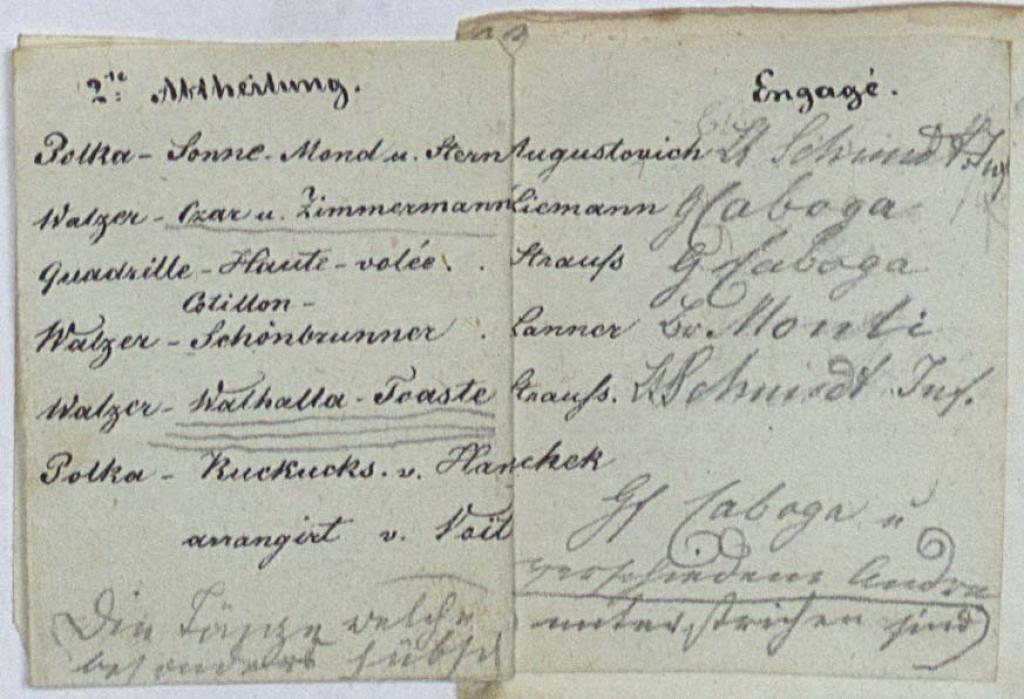 2te: Abtheilung.
Engagé.
Polka - Sonne. Mond u. Stern Augustovich Lt Schmidt Inf
Walzer - Czar u. Zimmermann Liemann Gf Caboga
Quadrille - Haute - volée. . Strauſs Gf Caboga
Cotillon -
Walzer - Schönbrunner . Lanner Br Monti
Walzer - Walhalla - Toaste Strauſs. Lt Schmidt Inf.
Polka - Kuckucks. v. Hanchek
arrangirt v. Voit
Gf Caboga u
verschiedene Andre
Die Tänze welche unterstrichen sind)
besonders hübsch